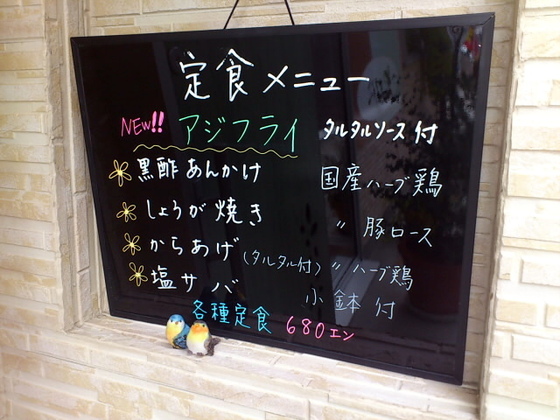 定食メニュー
NEW!! アジフライ タルタルソース付
黒酢あんかけ 国産ハーブ鶏
しょうが焼き 〃 豚ロース
からあげ (タルタル付) 〃 ハーブ鶏
塩サバ 小鉢付
各種定食 680エン